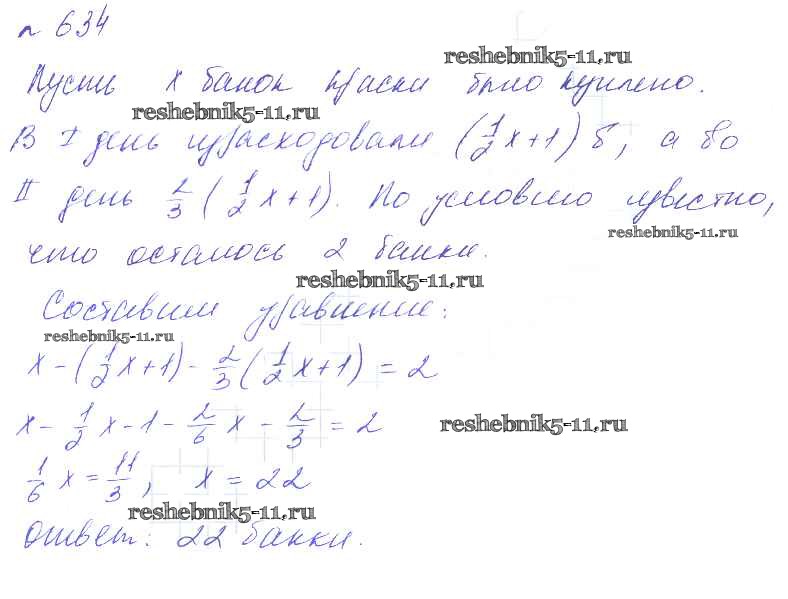 № 634
reshebnik5-11.ru
Пусть x банок краски было куплено.
reshebnik5-11.ru
В I день израсходовали (1/2 x + 1) б, а во
II день 2/3 (1/2 x + 1). По условию известно,
reshebnik5-11.ru
что осталось 2 банки.
reshebnik5-11.ru
Составим уравнение:
reshebnik5-11.ru
x - (1/2 x + 1) - 2/3 (1/2 x + 1) = 2
x - 1/2 x - 1 - 2/6 x - 2/3 = 2
reshebnik5-11.ru
1/6 x = 11/3, x = 22
reshebnik5-11.ru
Ответ: 22 банки.